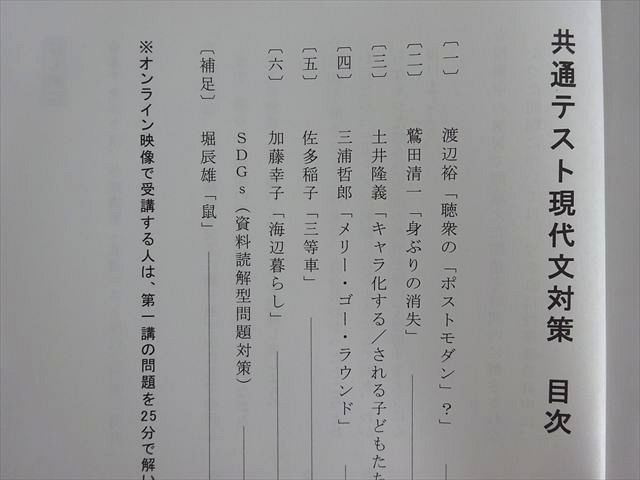 共通テスト現代文対策 目次
〔一〕 渡辺裕「聴衆の「ポストモダン」?」
〔二〕 鷲田清一「身ぶりの消失」
〔三〕 土井隆義「キャラ化する/される子どもたち
〔四〕 三浦哲郎「メリー・ゴー・ラウンド」
〔五〕 佐多稲子「三等車」
〔六〕 加藤幸子「海辺暮らし」
SDGs(資料読解型問題対策)
〔補足〕 堀辰雄「鼠」
※オンライン映像で受講する人は、第一講の問題を25分で解い